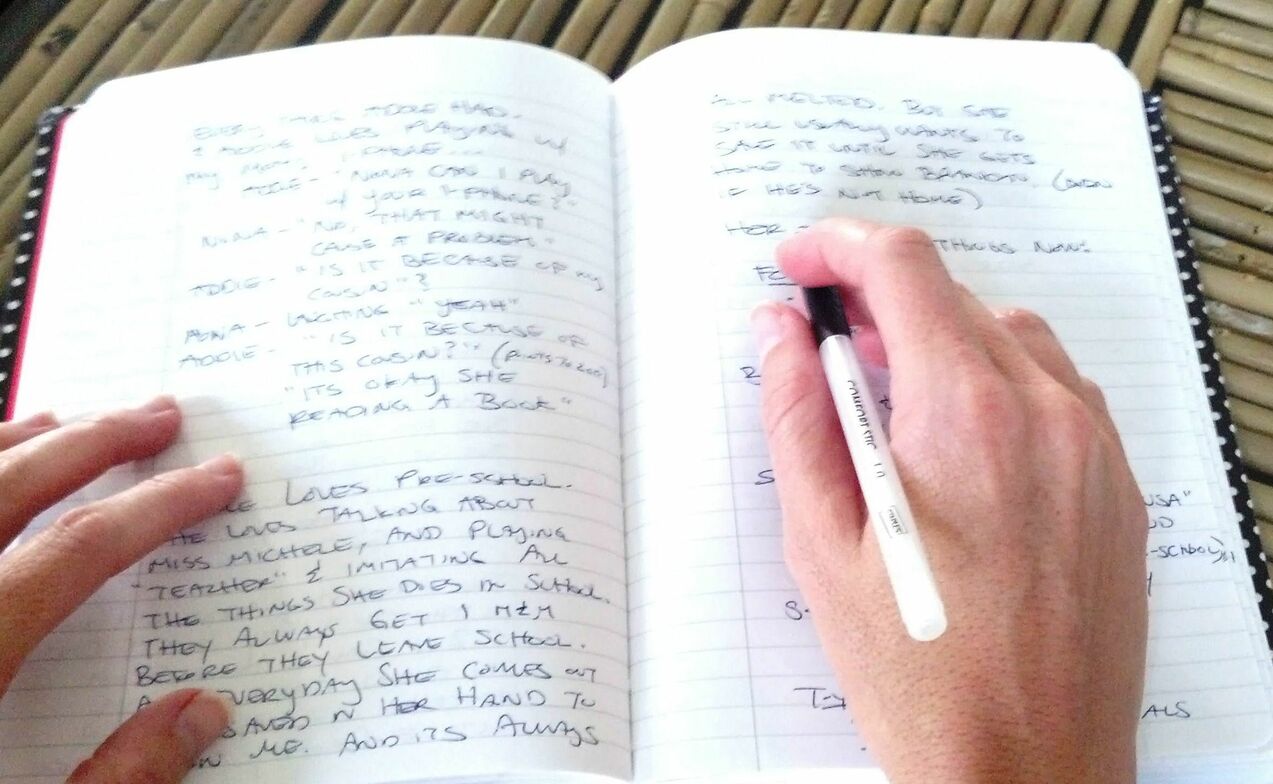 ADDIE HAD.
& ADDIE LOVES PLAYING W/
MY MOM'S I-PHONE...
ADDIE- "NONA CAN I PLAY
W/ YOUR I-PHONE?"
NONA - "NO, THAT MIGHT
CAUSE A PROBLEM"
ADDIE- "IS IT BECAUSE OF MY
COUSIN"?
NONA - "YEAH"
ADDIE- "IS IT BECAUSE OF
THIS COUSIN?" (POINTS TO ZOE)
"ITS OKAY SHE
READING A BOOK"
LOVES PRE-SCHOOL.
SHE LOVES TALKING ABOUT
MISS MICHELE, AND PLAYING
"TEACHER" & IMITATING ALL
THE THINGS SHE DOES IN SCHOOL.
THEY ALWAYS GET 1 M&M
BEFORE THEY LEAVE SCHOOL.
EVERYDAY SHE COMES OUT
SAVED IN HER HAND TO
ME. AND ITS ALWAYS
MELTED. BUT SHE
STILL USUALLY WANTS TO
SAVE IT UNTIL SHE GETS
HOME TO SHOW BRANDON. (EVEN
IF HE'S NOT HOME)
HER THINGS NOW:
USA"
PRE-SCHOOL)
COMFORTSTIC 1.0